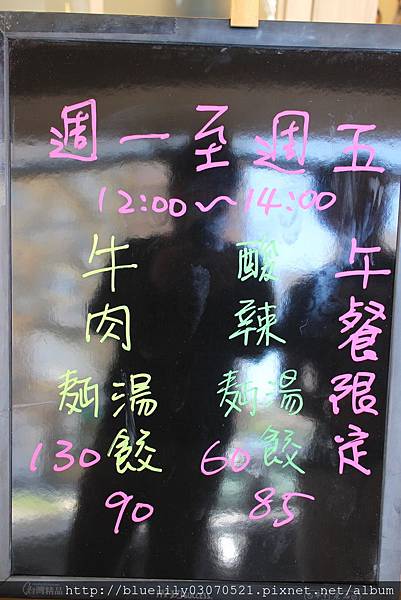 週一至週五
12:00～14:00
午餐限定
酸辣
麵 60
湯餃 85
牛肉
麵 130
湯餃 90
台灣精品
http://bluelily03070521.pixnet.net/album